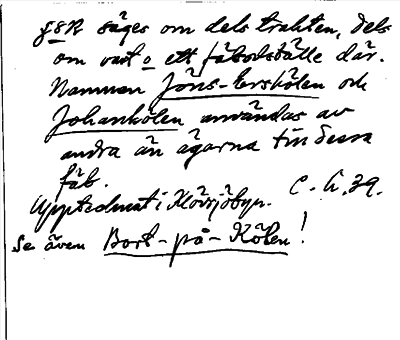 gsk säges om dels trakten, dels
om vart o ett fäbodställe där.
Namnen Jöns-Erskölen och
Johankölen användas av
andra än ägarna till dessa
fäb.
Upptecknat i Klövsjöbyn. C. G. 39.
Se även Bort-på-Kölen!